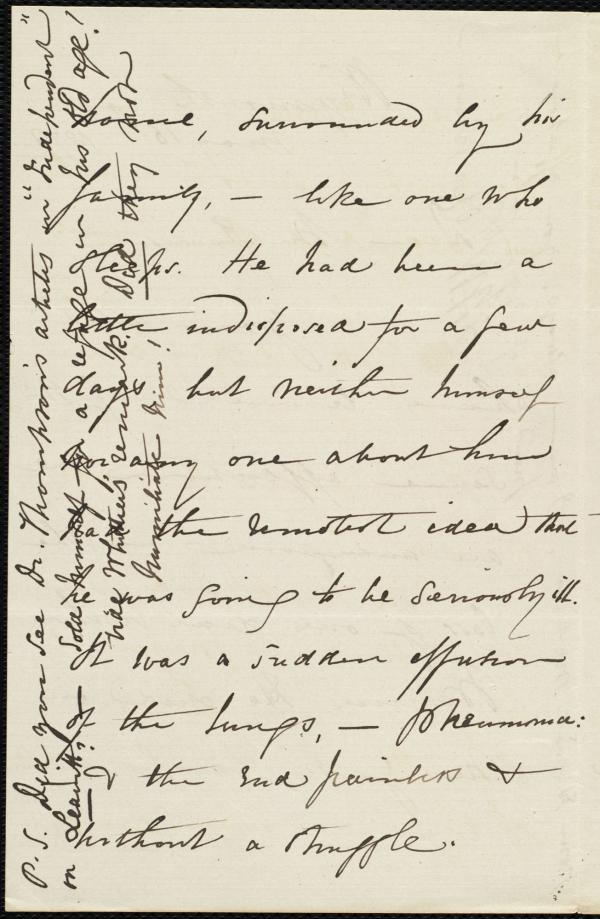 home, surrounded by his
family, — like one who
sleeps. He had been a
little indisposed for a few
days but neither himself
nor any one about him
had the remotest idea that
he was going to be seriously ill.
It was a sudden effusion
of the lungs, — pneumonia:
& the end painless &
without a struggle.
P.S. Did you see Dr. Thompson's articles in "Independent"
on Leavitt? — Sold himself for a refuge in his old age!
was Whittier's remark. Did they not
humiliate him!